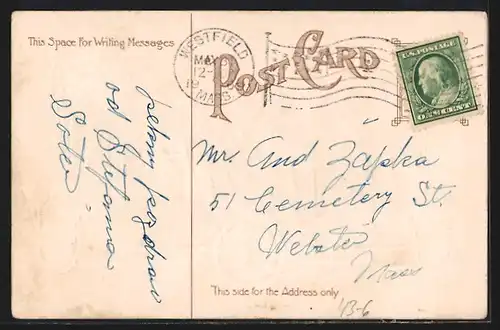 This Space For Writing Messages
POST CARD
WESTFIELD
MASS
U.S. POSTAGE
ONE CENT
pozdrav
od Stefana
Mr. And Zapka
51 Cemetery St.
Webster
Mass
This side for the Address only
13-6